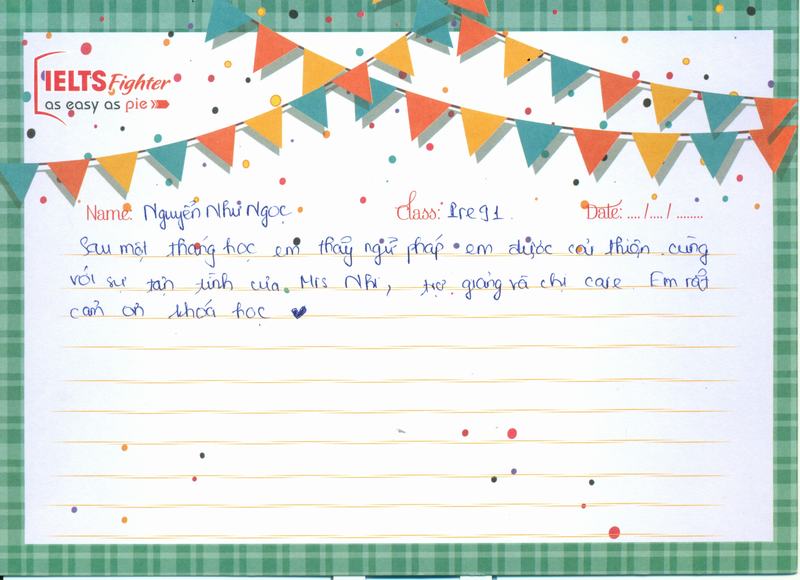 IELTS Fighter
as easy as pie
Name: Nguyễn Như Ngọc Class: Pre 91. Date: .... /.... / ........
Sau một tháng học em thấy ngữ pháp em được cải thiện cùng
với sự tận tình của Mrs Nhi, trợ giảng và chị care. Em rất
cảm ơn khoá học